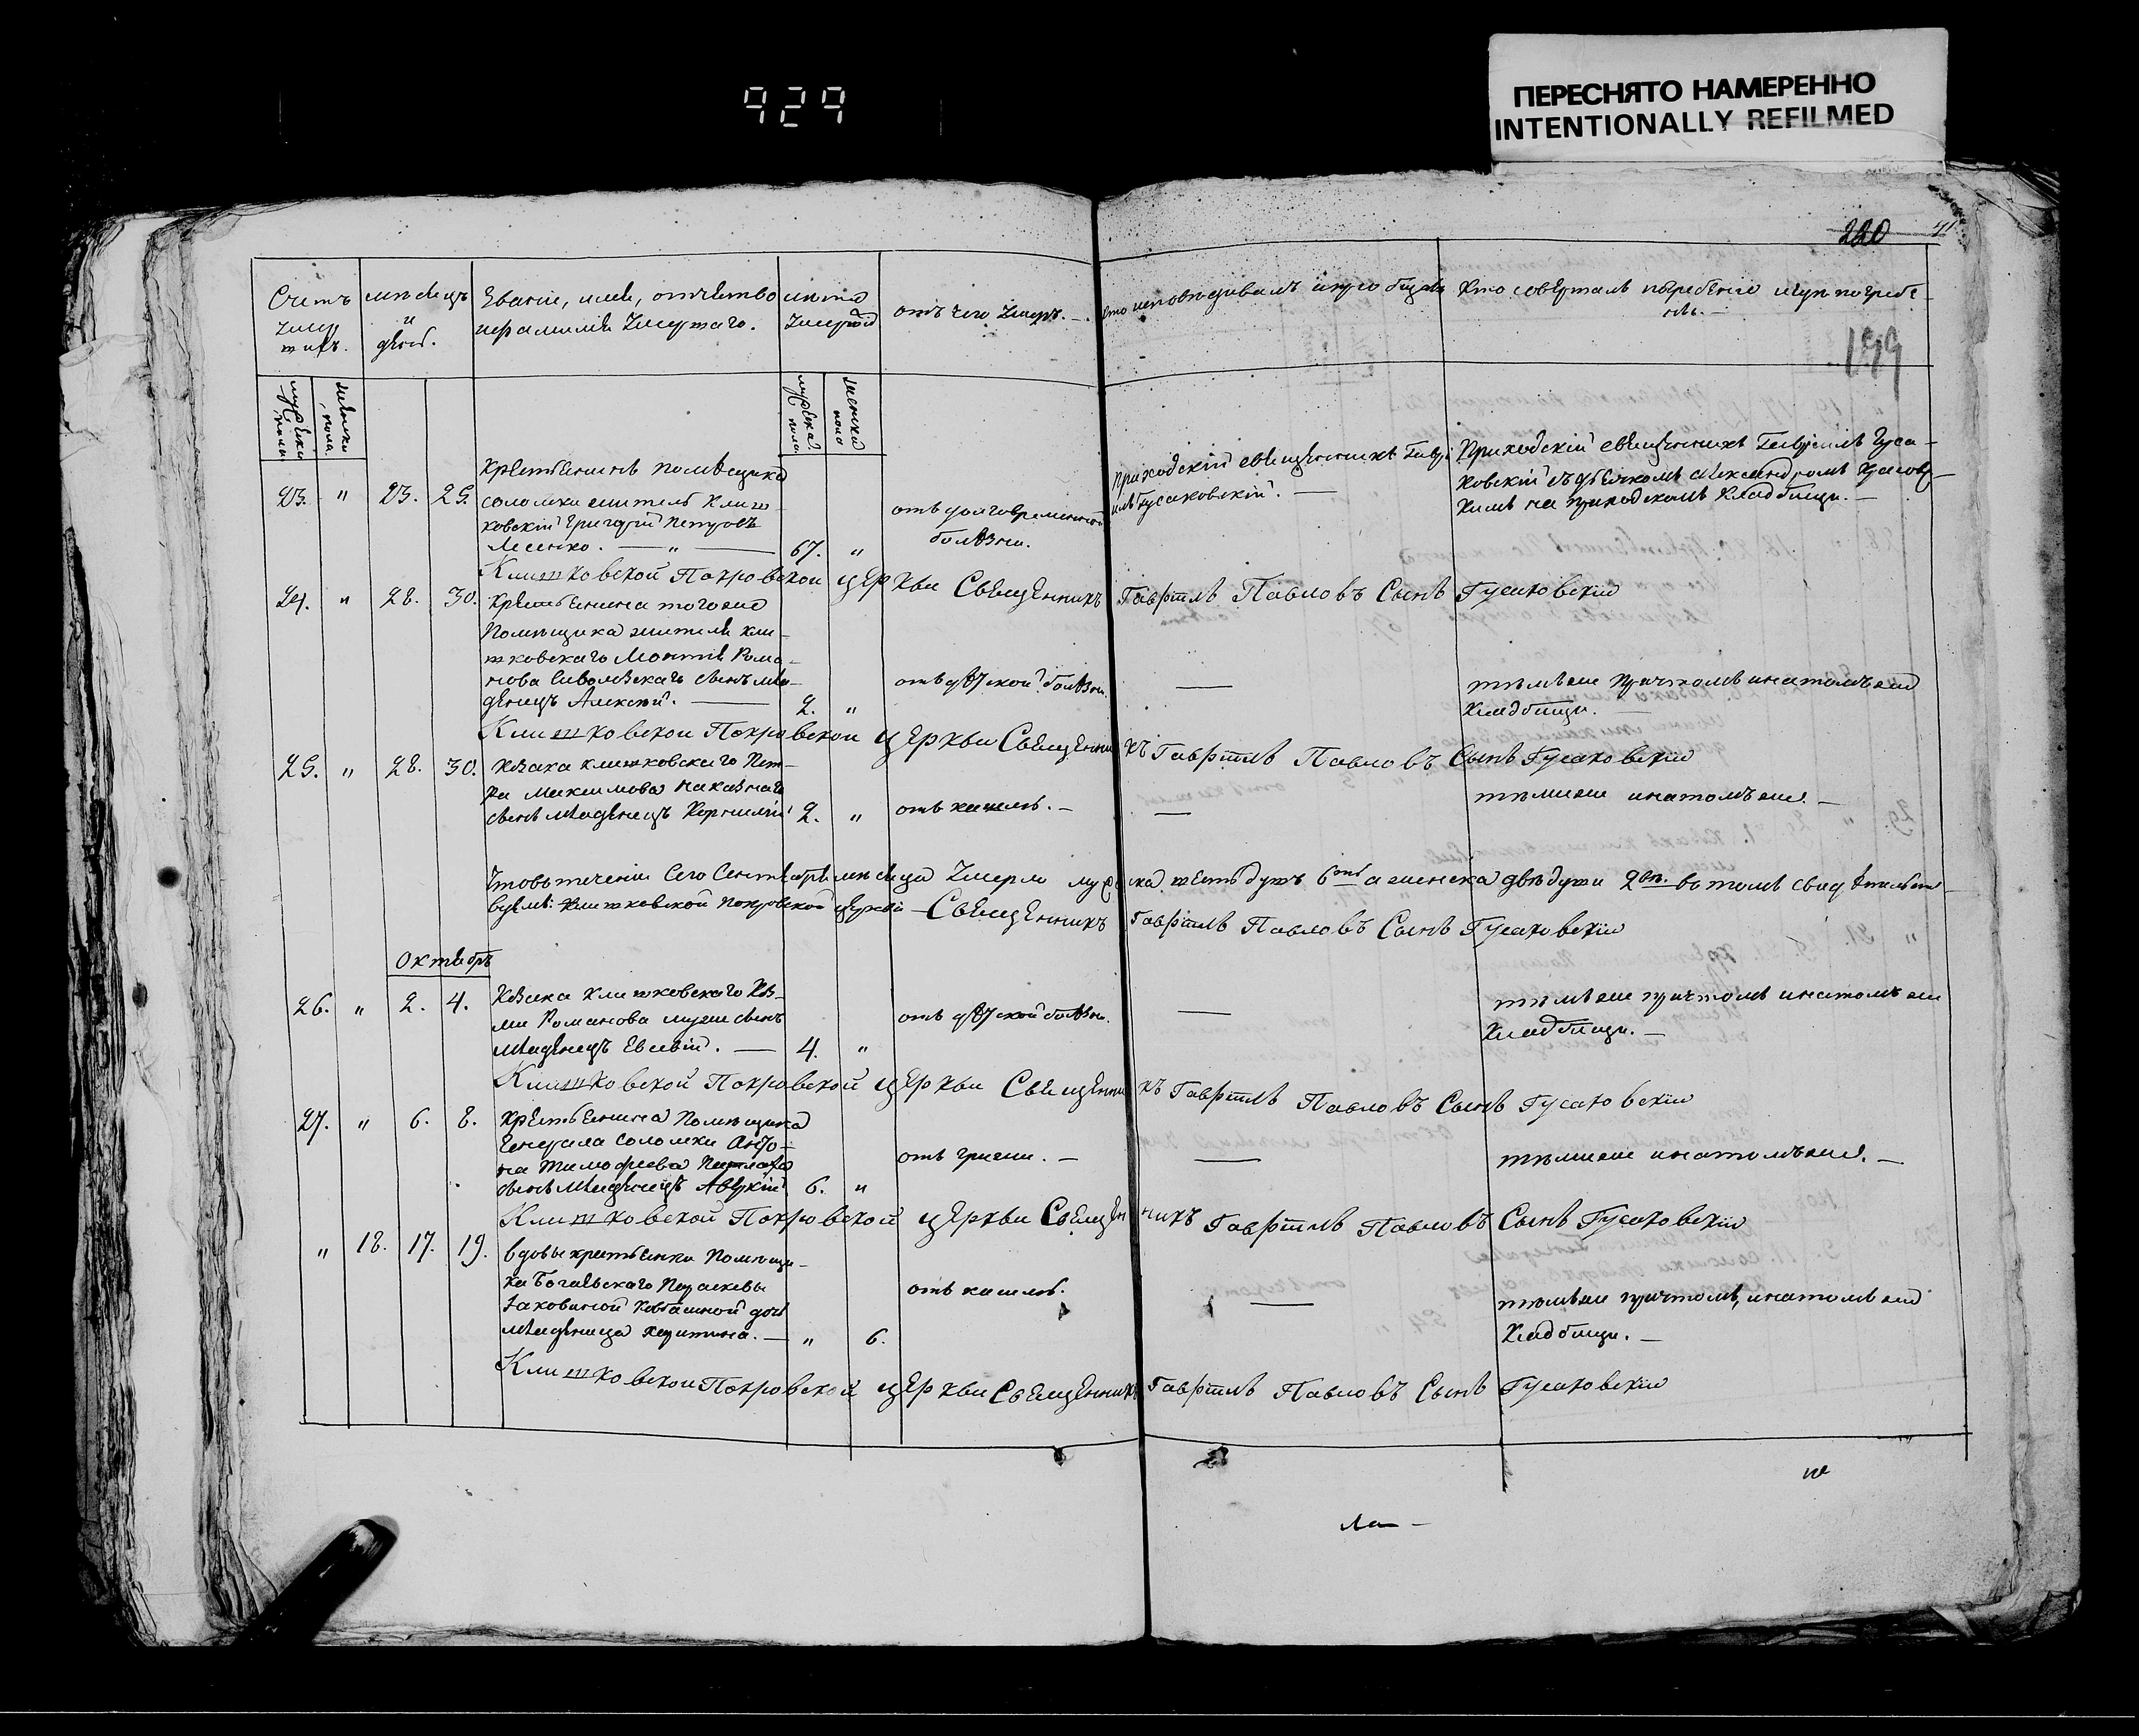 929
ПЕРЕСНЯТО НАМЕРЕННО
INTENTIONALLY REFILMED
220
199
Счетъ умершихъ.
мѣсяцъ и день.
Званіе, имя, отчество и фамилія умершаго.
лѣта умершаго
отъ чего умеръ. —
кто исповѣдывалъ и пріобщалъ
кто совершалъ погребеніе и гдѣ погребены. —
мужеска пола
женска пола
мужеска пола
женска пола
23. " 23. 25.
крестьянинъ помѣщика
соломки житель Клиш-
ковскій Григорій Петровъ
Лесенко. — " — 67. "
отъ долговременной
болѣзни.
приходскій священникъ Гаврі-
илъ Гусаковскій. —
Приходскій священникъ Гавріилъ Гуса-
ковскій съ дьячкомъ Александромъ
на приходскомъ кладбищи. —
Клишковской Покровской церкви Священникъ Гавріилъ Павловъ Сынъ Гусаковскій
24. " 28. 30.
крестьянина тогоже
Помѣщика жителя Кли-
шковскаго Рома-
нова сынъ мла-
денецъ Алексѣй. — 2. "
отъ дѣтской болѣзни.
—
тѣмъже причтомъ и натомъже
кладбищи. —
Клишковской Покровской церкви Священникъ Гавріилъ Павловъ Сынъ Гусаковскій
25. " 28. 30.
козака клишковскаго Пет-
ра Максимова Наказнаго
сынъ младенецъ Корнилій 2. "
отъ кашля. —
—
тѣмже и натомъже. —
Клишковской Покровской церкви Священникъ Гавріилъ Павловъ Сынъ Гусаковскій
Что въ теченіи сего Сентября мѣсяца умерло мужеска шесть душъ 6ть а женска двѣ души 2вѣ. въ томъ свидѣтельст-
вуемъ: Клишковской Покровской церкви — Священникъ Гавріилъ Павловъ Сынъ Гусаковскій
Октябрь
26. " 2. 4.
козака клишковскаго Коз-
мы Романова сынъ
младенецъ Евсевій. — 4. "
отъ дѣтской болѣзни.
—
тѣмъже причтомъ и натомъже
кладбищи. —
Клишковской Покровской церкви Священникъ Гавріилъ Павловъ Сынъ Гусаковскій
27. " 6. 8.
крестьянина Помѣщика
Генерала Соломки Анто-
на Тимофеева
сынъ младенецъ Аверкій 6. "
отъ грижи. —
—
тѣмже и натомъже. —
Клишковской Покровской церкви Священникъ Гавріилъ Павловъ Сынъ Гусаковскій
" 18. 17. 19.
вдовы крестьянки Помѣщи-
ка Парасковы
Іаковиной дочь
младеница Харитина. — " 6.
отъ кашля.
—
тѣмъже причтомъ, и натомъже
кладбищи. —
Клишковской Покровской церкви Священникъ Гавріилъ Павловъ Сынъ Гусаковскій